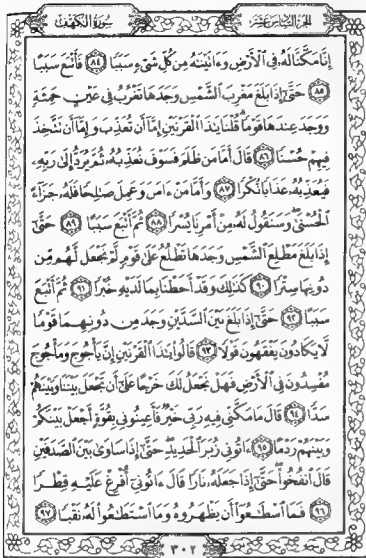 الجزء السادس عشر
سورة الكهف
إِنَّا مَكَّنَّا لَهُۥ فِى ٱلْأَرْضِ وَءَاتَيْنَٰهُ مِن كُلِّ شَىْءٍ سَبَبًا ٨٤ فَأَتْبَعَ سَبَبًا
٨٥ حَتَّىٰٓ إِذَا بَلَغَ مَغْرِبَ ٱلشَّمْسِ وَجَدَهَا تَغْرُبُ فِى عَيْنٍ حَمِئَةٍ
وَوَجَدَ عِندَهَا قَوْمًا قُلْنَا يَٰذَا ٱلْقَرْنَيْنِ إِمَّآ أَن تُعَذِّبَ وَإِمَّآ أَن تَتَّخِذَ
فِيهِمْ حُسْنًا ٨٦ قَالَ أَمَّا مَن ظَلَمَ فَسَوْفَ نُعَذِّبُهُۥ ثُمَّ يُرَدُّ إِلَىٰ رَبِّهِۦ
فَيُعَذِّبُهُۥ عَذَابًا نُّكْرًا ٨٧ وَأَمَّا مَنْ ءَامَنَ وَعَمِلَ صَٰلِحًا فَلَهُۥ جَزَآءً
ٱلْحُسْنَىٰ وَسَنَقُولُ لَهُۥ مِنْ أَمْرِنَا يُسْرًا ٨٨ ثُمَّ أَتْبَعَ سَبَبًا ٨٩ حَتَّىٰٓ
إِذَا بَلَغَ مَطْلِعَ ٱلشَّمْسِ وَجَدَهَا تَطْلُعُ عَلَىٰ قَوْمٍ لَّمْ نَجْعَل لَّهُم مِّن
دُونِهَا سِتْرًا ٩٠ كَذَٰلِكَ وَقَدْ أَحَطْنَا بِمَا لَدَيْهِ خُبْرًا ٩١ ثُمَّ أَتْبَعَ
سَبَبًا ٩٢ حَتَّىٰٓ إِذَا بَلَغَ بَيْنَ ٱلسَّدَّيْنِ وَجَدَ مِن دُونِهِمَا قَوْمًا
لَّا يَكَادُونَ يَفْقَهُونَ قَوْلًا ٩٣ قَالُوا۟ يَٰذَا ٱلْقَرْنَيْنِ إِنَّ يَأْجُوجَ وَمَأْجُوجَ
مُفْسِدُونَ فِى ٱلْأَرْضِ فَهَلْ نَجْعَلُ لَكَ خَرْجًا عَلَىٰٓ أَن تَجْعَلَ بَيْنَنَا وَبَيْنَهُمْ
سَدًّا ٩٤ قَالَ مَا مَكَّنِّى فِيهِ رَبِّى خَيْرٌ فَأَعِينُونِى بِقُوَّةٍ أَجْعَلْ بَيْنَكُمْ
وَبَيْنَهُمْ رَدْمًا ٩٥ ءَاتُونِى زُبَرَ ٱلْحَدِيدِ حَتَّىٰٓ إِذَا سَاوَىٰ بَيْنَ ٱلصَّدَفَيْنِ
قَالَ ٱنفُخُوا۟ حَتَّىٰٓ إِذَا جَعَلَهُۥ نَارًا قَالَ ءَاتُونِىٓ أُفْرِغْ عَلَيْهِ قِطْرًا
٩٦ فَمَا ٱسْطَٰعُوٓا۟ أَن يَظْهَرُوهُ وَمَا ٱسْتَطَٰعُوا۟ لَهُۥ نَقْبًا ٩٧
٣٠٢